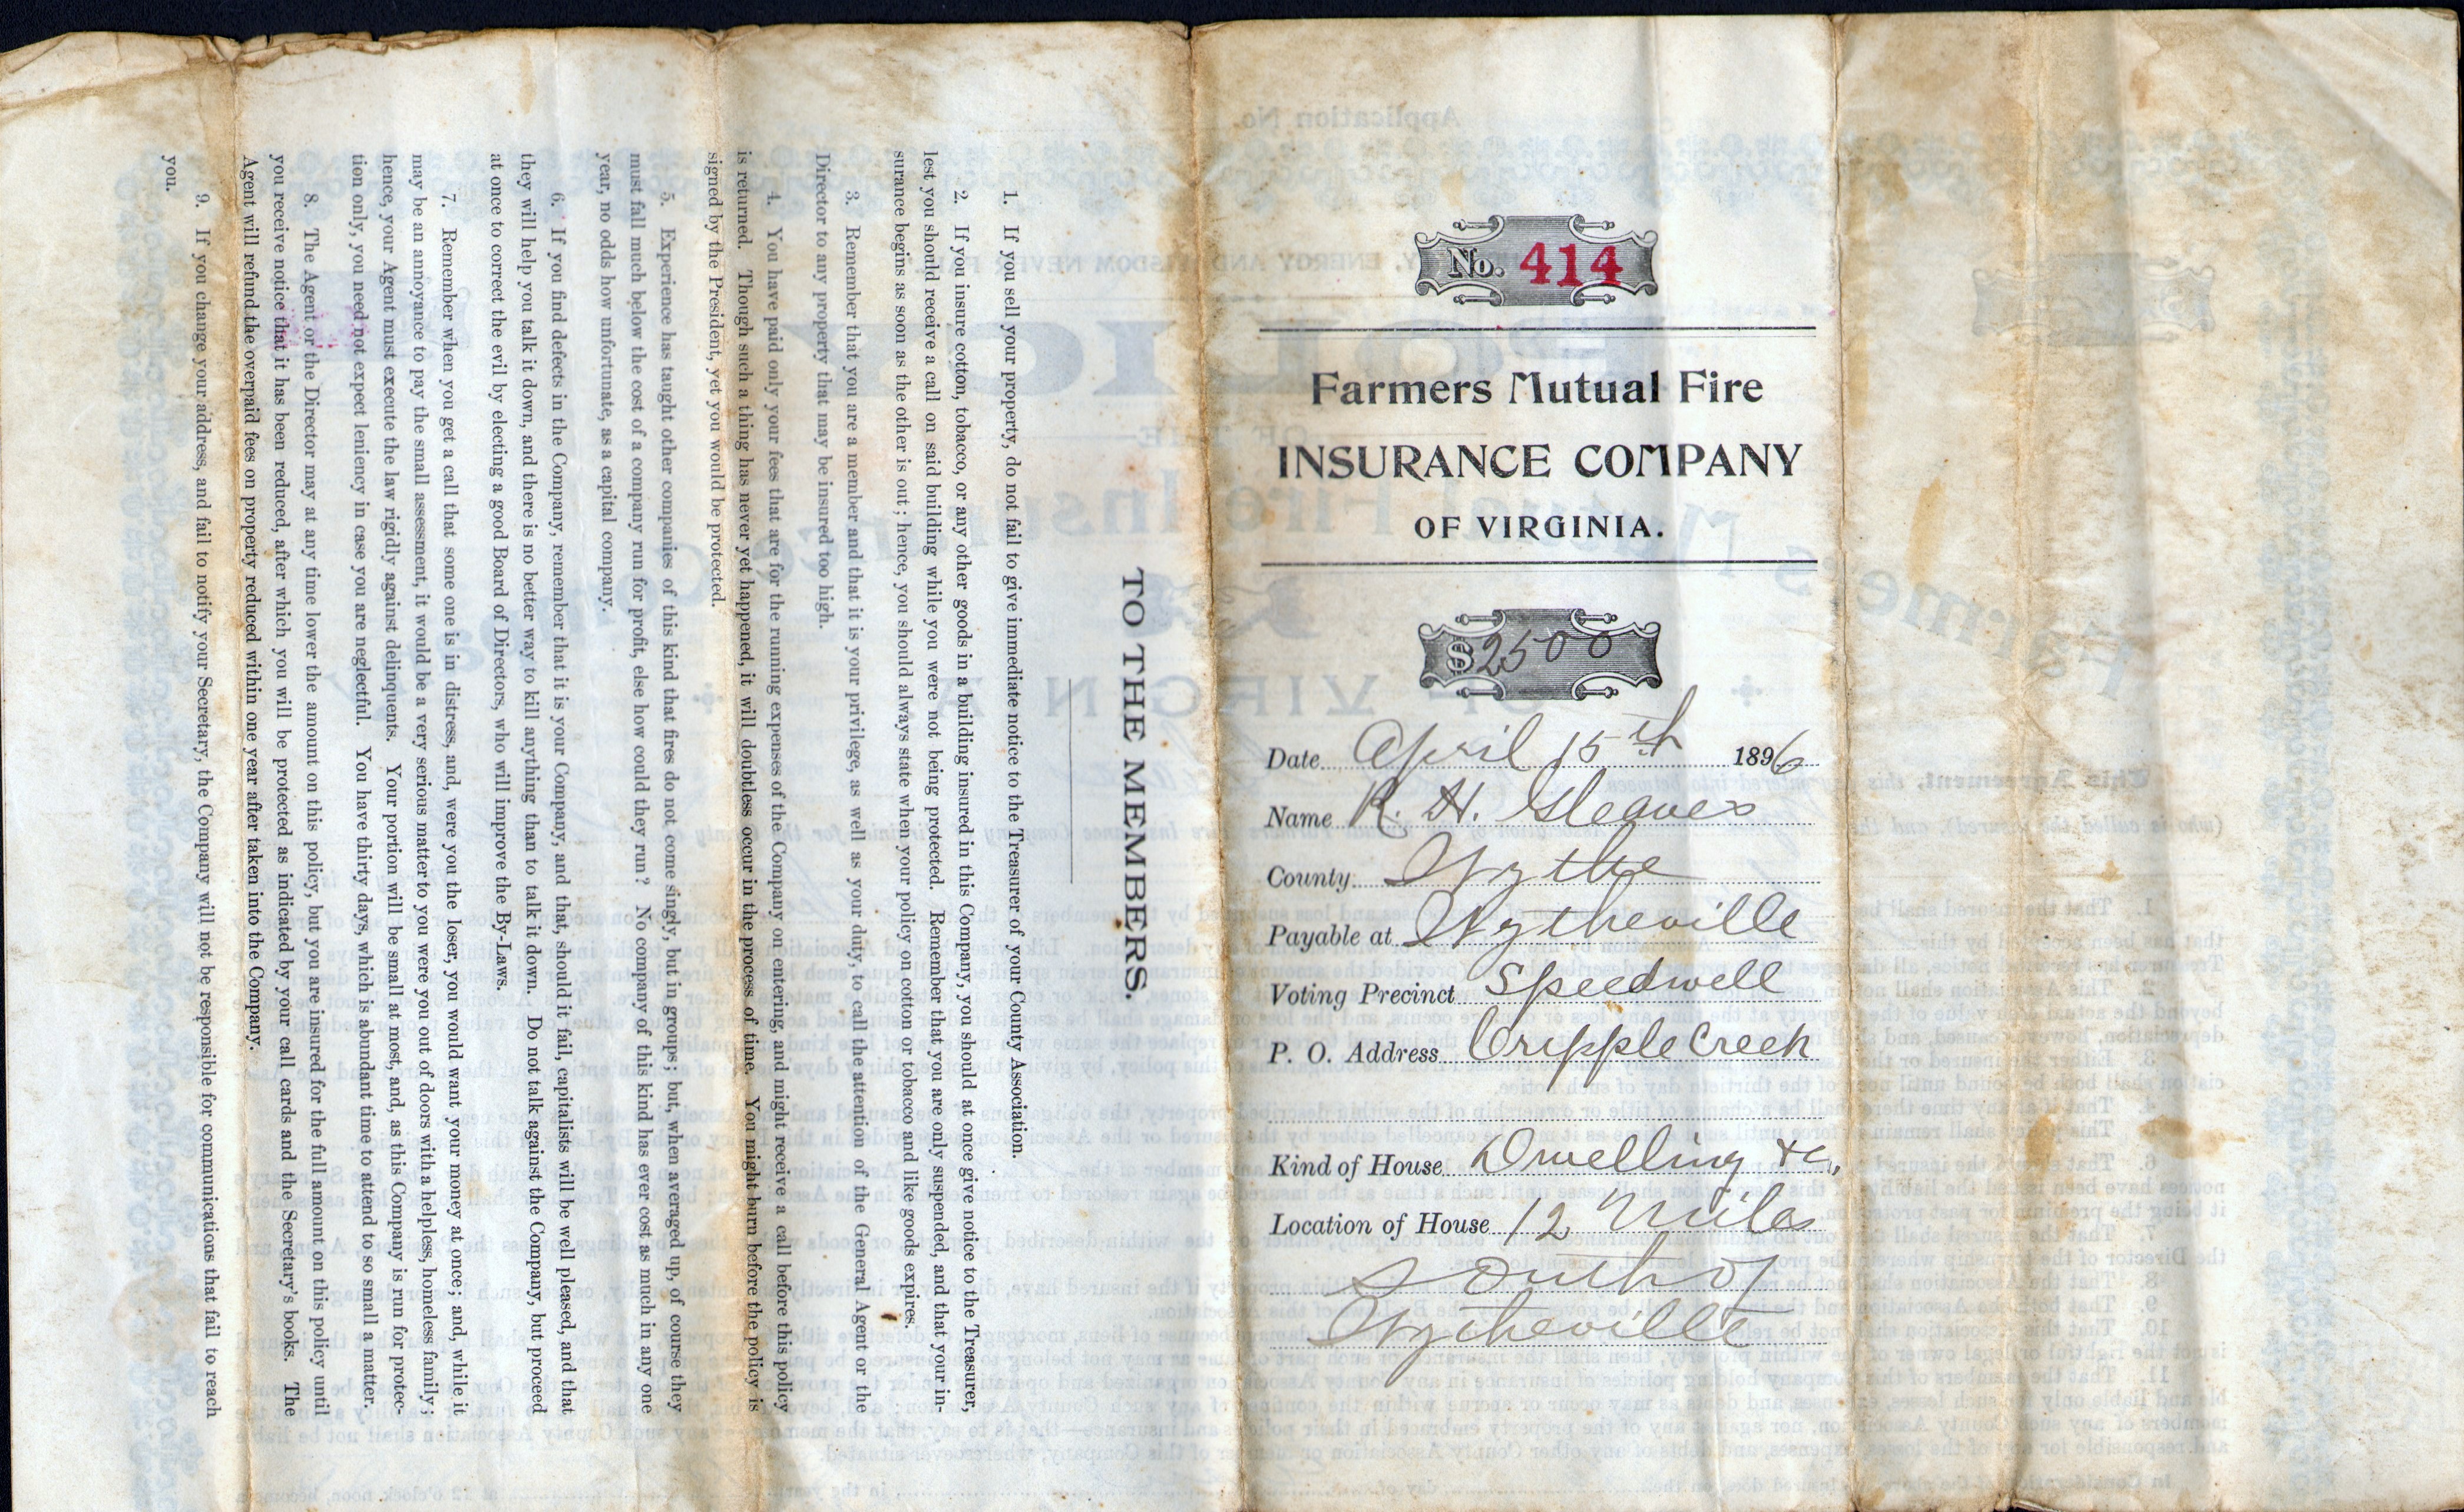 No. 414
Farmers Mutual Fire
INSURANCE COMPANY
OF VIRGINIA.
$2500
Date April 15th 1896
Name R. H. Gleaves
County Wythe
Payable at Wytheville
Voting Precinct Speedwell
P. O. Address Cripple Creek
Kind of House Dwelling &c,
Location of House 12 Miles
South of
Wytheville
TO THE MEMBERS.
1. If you sell your property, do not fail to give immediate notice to the Treasurer of your County Association.
2. If you insure cotton, tobacco, or any other goods in a building insured in this Company, you should at once give notice to the Treasurer,
lest you should receive a call on said building while you were not being protected. Remember that you are only suspended, and that your in-
surance begins as soon as the other is out; hence, you should always state when your policy on cotton or tobacco and like goods expires.
3. Remember that you are a member and that it is your privilege, as well as your duty, to call the attention of the General Agent or the
Director to any property that may be insured too high.
4. You have paid only your fees that are for the running expenses of the Company on entering, and might receive a call before this policy
is returned. Though such a thing has never yet happened, it will doubtless occur in the process of time. You might burn before the policy is
signed by the President, yet you would be protected.
5. Experience has taught other companies of this kind that fires do not come singly, but in groups; but, when averaged up, of course they
must fall much below the cost of a company run for profit, else how could they run? No company of this kind has ever cost as much in any one
year, no odds how unfortunate, as a capital company.
6. If you find defects in the Company, remember that it is your Company, and that, should it fail, capitalists will be well pleased, and that
they will help you talk it down, and there is no better way to kill anything than to talk it down. Do not talk against the Company, but proceed
at once to correct the evil by electing a good Board of Directors, who will improve the By-Laws.
7. Remember when you get a call that some one is in distress, and, were you the loser, you would want your money at once; and, while it
may be an annoyance to pay the small assessment, it would be a very serious matter to you were you out of doors with a helpless, homeless family;
hence, your Agent must execute the law rigidly against delinquents. Your portion will be small at most, and, as this Company is run for protec-
tion only, you need not expect leniency in case you are neglectful. You have thirty days, which is abundant time to attend to so small a matter.
8. The Agent or the Director may at any time lower the amount on this policy, but you are insured for the full amount on this policy until
you receive notice that it has been reduced, after which you will be protected as indicated by your call cards and the Secretary's books. The
Agent will refund the overpaid fees on property reduced within one year after taken into the Company.
9. If you change your address, and fail to notify your Secretary, the Company will not be responsible for communications that fail to reach
you.